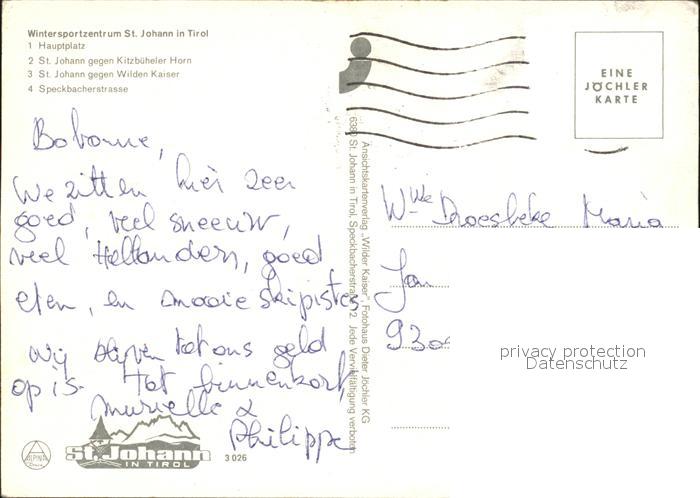 Wintersportzentrum St. Johann in Tirol
1 Hauptplatz
2 St. Johann gegen Kitzbüheler Horn
3 St. Johann gegen Wilden Kaiser
4 Speckbacherstrasse
Bobonne,
We zitten hier zeer
goed, veel sneeuw,
veel Hollanders, goed
eten, en mooie skipistes
Wij blijven tot ons geld
op is. Tot binnenkort,
Murielle &
Philippe
ALPINA
St. Johann
IN TIROL
3 026
Ansichtskartenverlag „Wilder Kaiser", Fotohaus Dieter Jöchler KG
6380 St. Johann in Tirol, Speckbacherstraße 2 Jede Vervielfältigung verboten
EINE
JÖCHLER
KARTE
Wwe Droesbeke Maria
Jan
930
privacy protection
Datenschutz